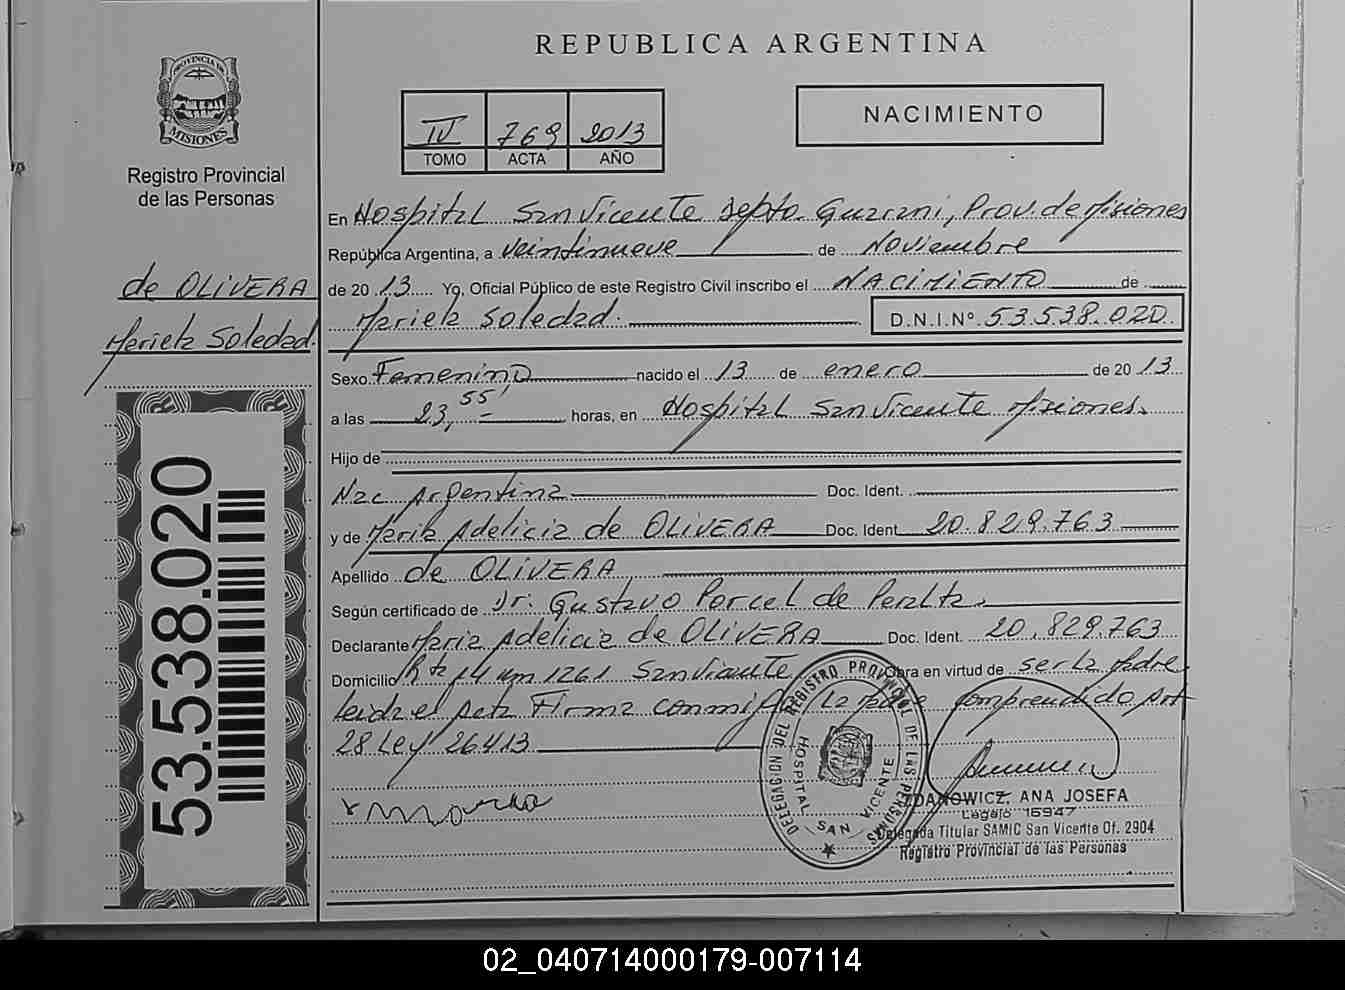 REPUBLICA ARGENTINA
PROVINCIA DE
MISIONES
Registro Provincial
de las Personas
IV 769 2013
TOMO ACTA AÑO
NACIMIENTO
de OLIVERA
Mariela Soledad.
53.538.020
En Hospital San Vicente Depto. Guarani, Prov. de Misiones
República Argentina, a veintinueve de Noviembre
de 2013 Yo, Oficial Público de este Registro Civil inscribo el NACIMIENTO de
Mariela Soledad. D.N.I.Nº 53.538.020
Sexo Femenino nacido el 13 de enero de 2013
a las 23,55' horas, en Hospital San Vicente Misiones.
Hijo de
Nac Argentina Doc. Ident.
y de Maria Adelicia de OLIVERA Doc. Ident 20.829.763
Apellido de OLIVERA
Según certificado de Dr. Gustavo Porcel de Peralta
Declarante Maria Adelicia de OLIVERA Doc. Ident. 20.829.763
Domicilio Rta 14 km 1261 San Vicente Obra en virtud de ser la Madre
leida el acta Firma conmigo la comprendido art
28 Ley 26413
x Maria
DELEGACION DEL REGISTRO PROVINCIAL DE LAS PERSONAS
HOSPITAL SAN VICENTE
ZDANOWICZ, ANA JOSEFA
Legajo 15947
Delegada Titular SAMIC San Vicente Of. 2904
Registro Provincial de las Personas
02_040714000179-007114